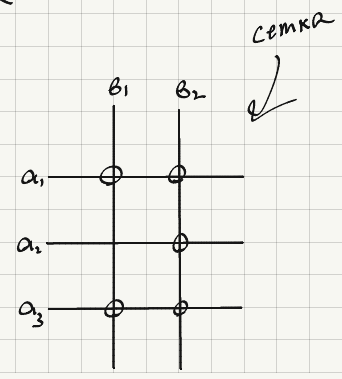 сетка
в₁ в₂
a₁
a₂
a₃